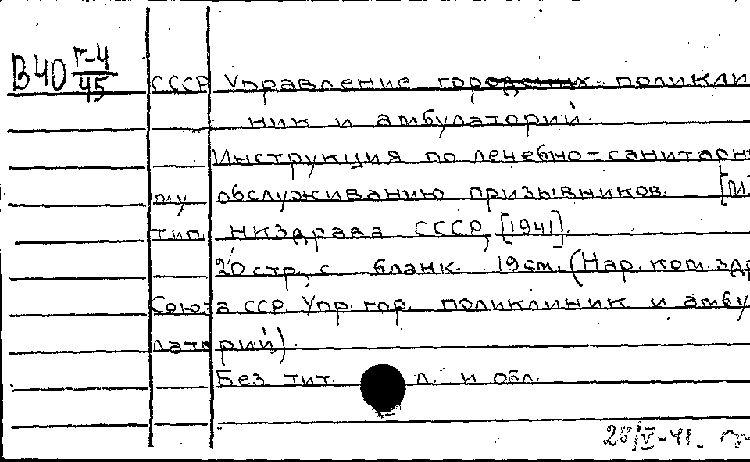 В40 г-4/45
СССР Управление гор поликли
ник и амбулаторий.
Инструкция по лечебно-санитарн
му обслуживанию призывников. [М]
тип. НКЗдрава СССР, [1941].
20 стр. с бланк. 19 см. (Нар. ком. здр
Союза ССР Упр. гор. поликлиник и амбу
латорий).
Без тит. л. и обл.
28/V-41.